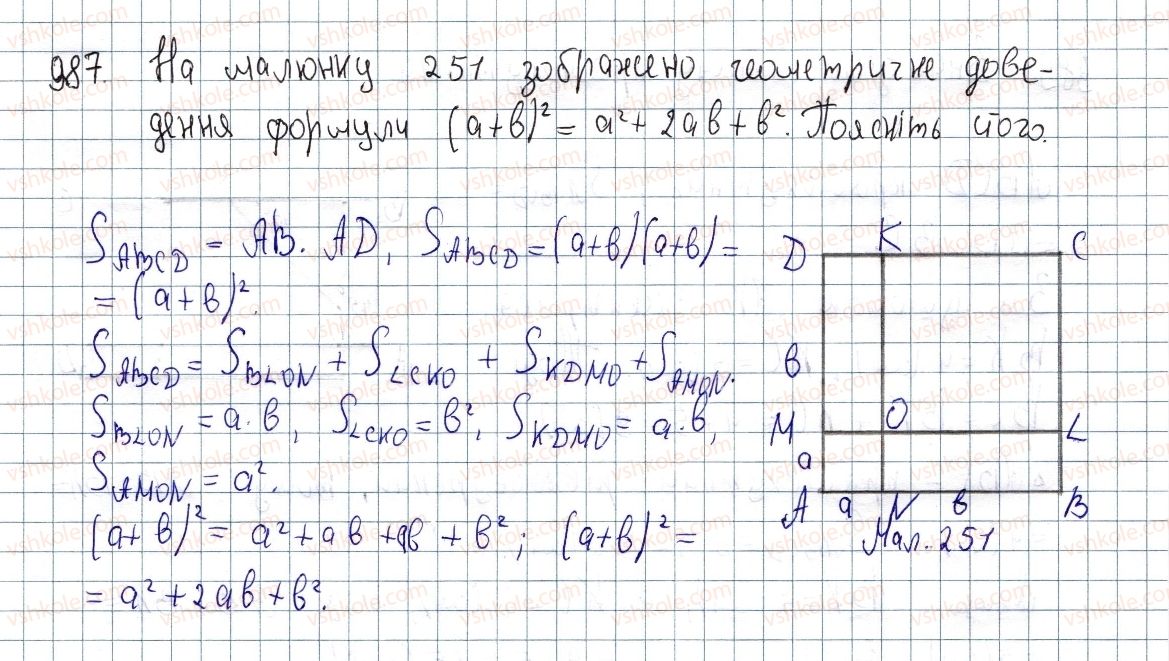 987. На малюнку 251 зображено геометричне дове-
дення формули (a+b)² = a² + 2ab + b². Поясніть його.
S_ABCD = AB · AD, S_ABCD = (a+b)(a+b) =
= (a+b)².
S_ABCD = S_BLON + S_LCKO + S_KDMO + S_AMON.
S_BLON = a·b, S_LCKO = b², S_KDMO = a·b,
S_AMON = a².
(a+b)² = a² + ab + ab + b²; (a+b)² =
= a² + 2ab + b².
D K C
b
M O L
a
A a N b B
Мал. 251